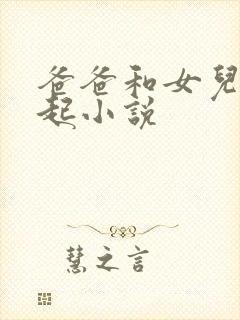 爸爸和女兒
起小說
慧之言